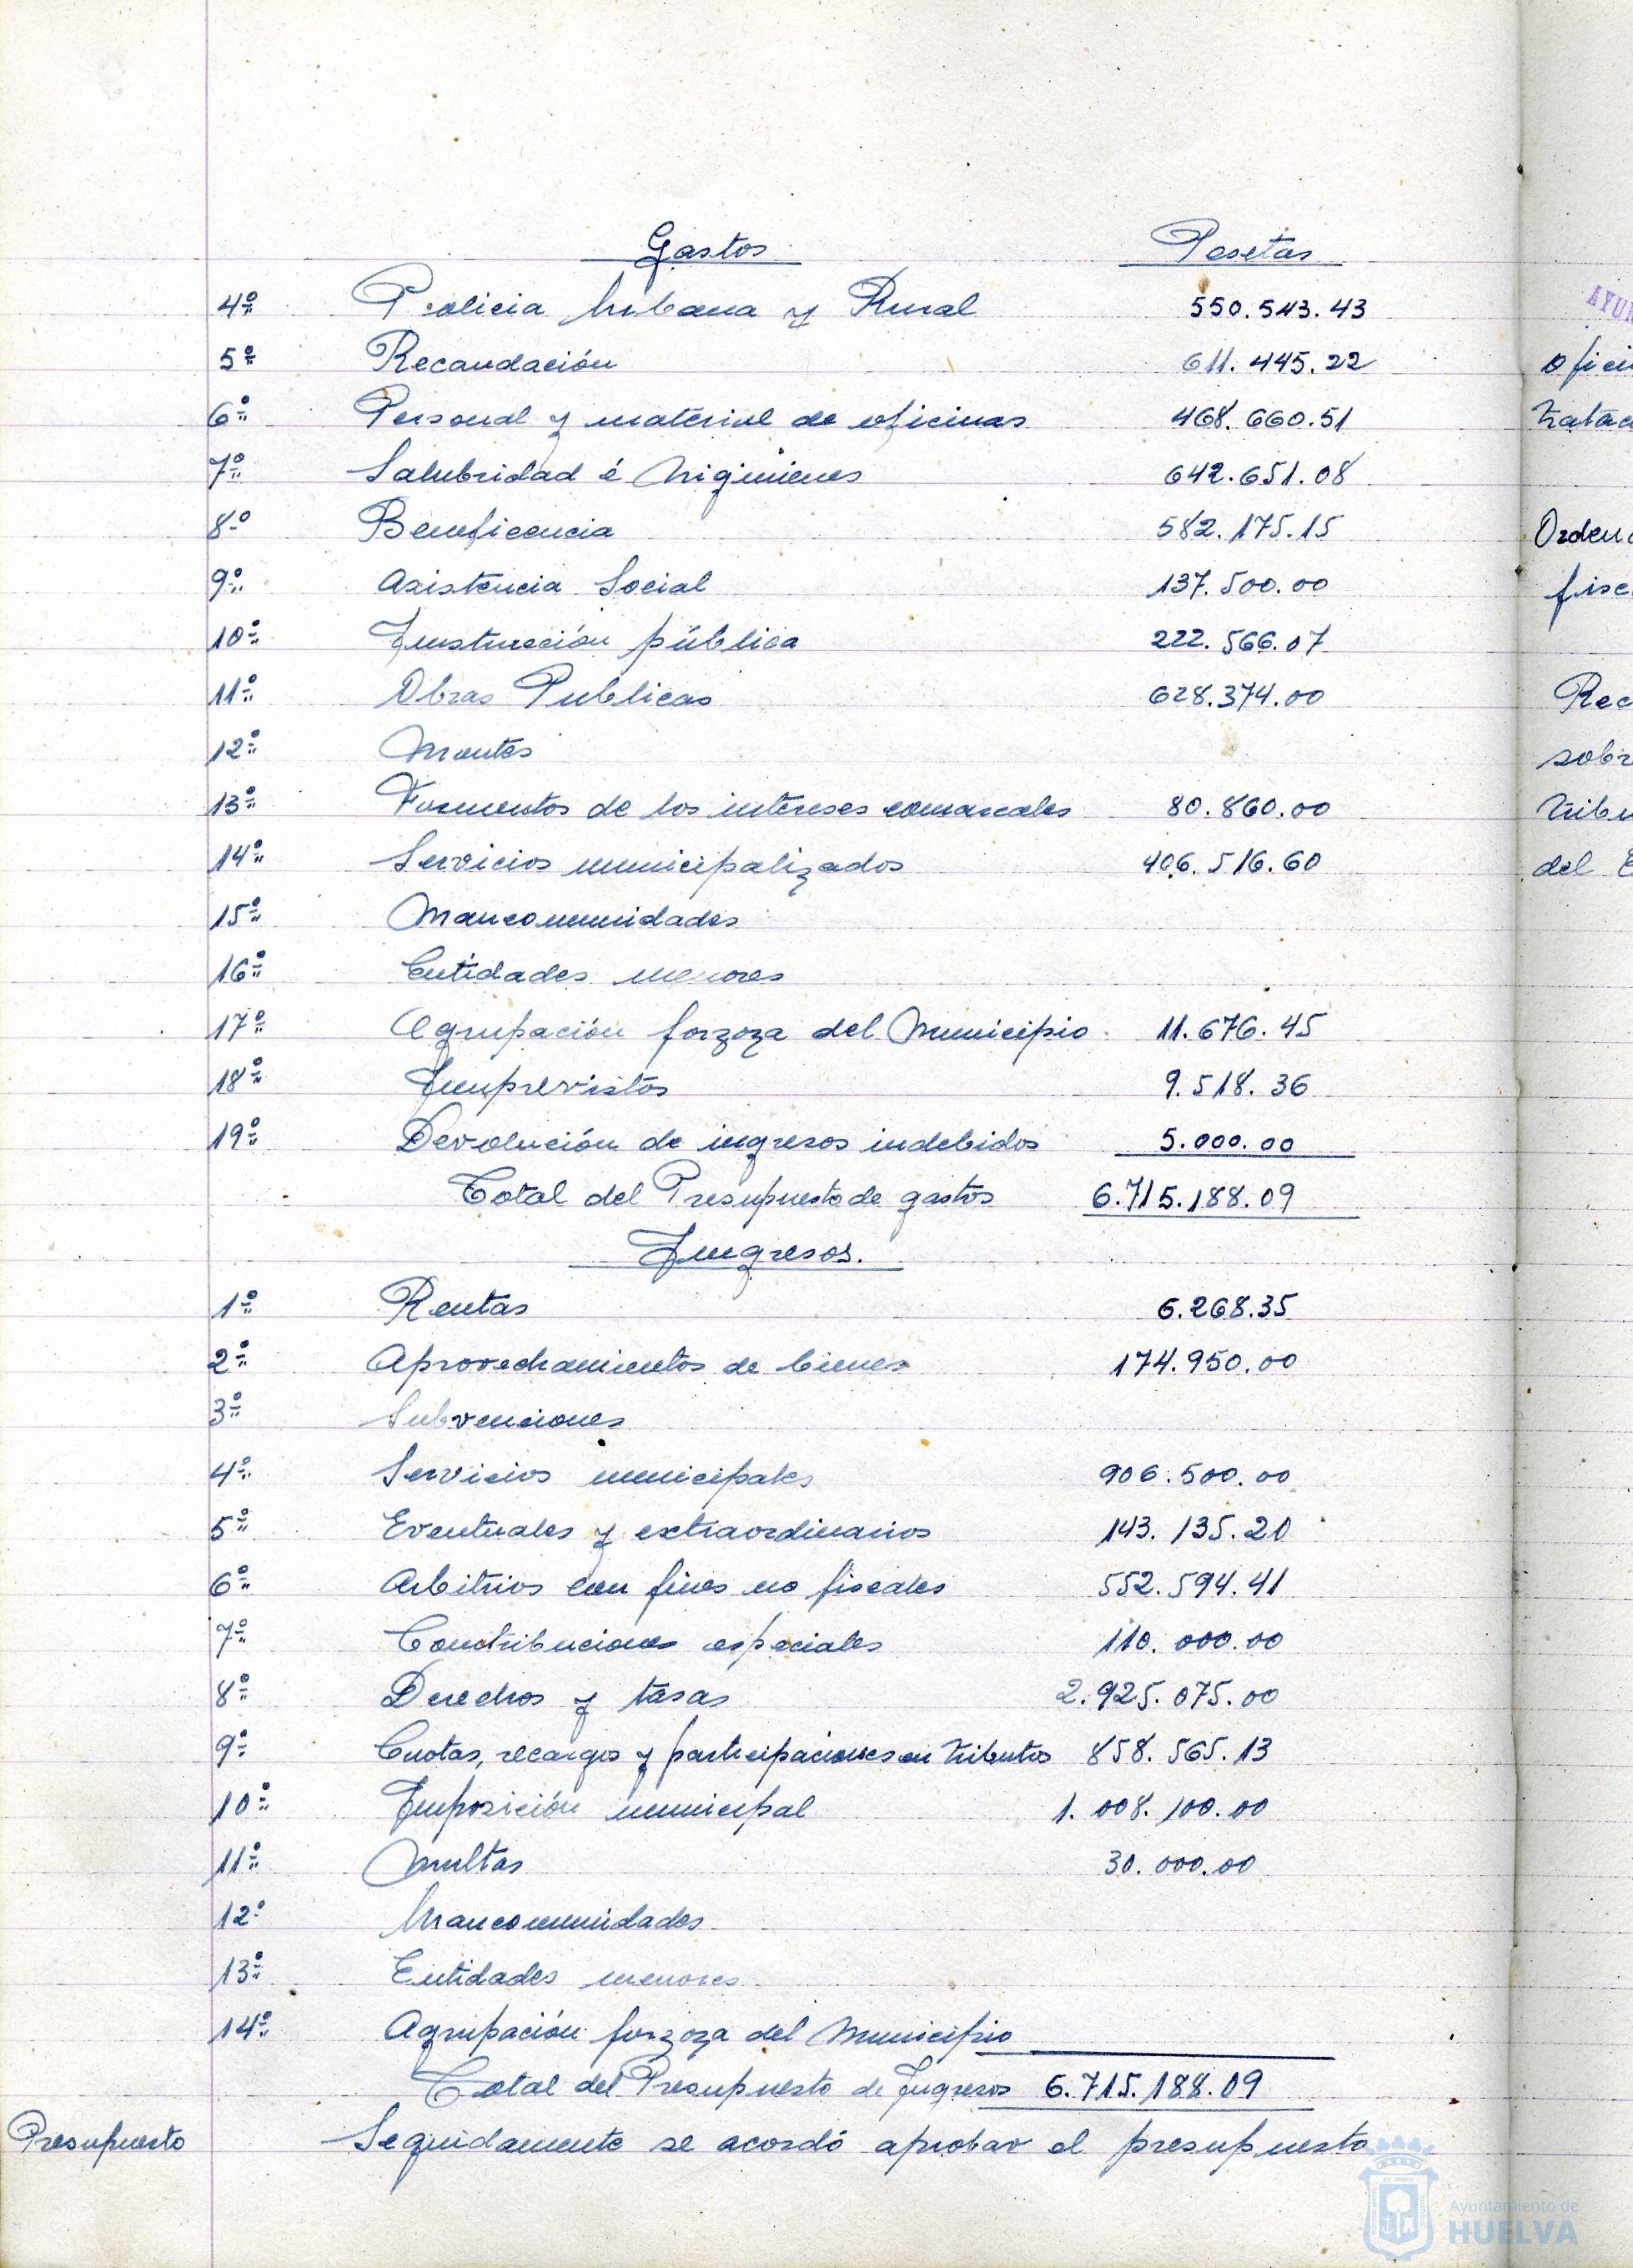 Gastos Pesetas
4º Policia Urbana y Rural 550.543.43
5º Recaudación 611.445.22
6º Personal y material de oficinas 468.660.51
7º Salubridad é higienes 642.651.08
8º Beneficencia 582.175.15
9º Asistencia Social 137.500.00
10º Instrucción pública 222.566.07
11º Obras Publicas 628.374.00
12º Montes
13º Fomentos de los intereses comarcales 80.860.00
14º Servicios municipalizados 406.516.60
15º Mancomunidades
16º Entidades menores
17º Agrupación forzoza del Municipio 11.676.45
18º Imprevistos 9.518.36
19º Devolución de ingresos indebidos 5.000.00
Total del Presupuesto de gastos 6.715.188.09
Ingresos.
1º Rentas 6.268.35
2º Aprovechamientos de bienes 174.950.00
3º Subvenciones
4º Servicios municipales 906.500.00
5º Eventuales y extraordinarios 143.135.20
6º Arbitrios con fines no fiscales 552.594.41
7º Contribuciones especiales 110.000.00
8º Derechos y tasas 2.925.075.00
9º Cuotas, recargos y participaciones en tributos 858.565.13
10º Imposición municipal 1.008.100.00
11º Multas 30.000.00
12º Mancomunidades
13º Entidades menores
14º Agrupación forzoza del Municipio
Total del Presupuesto de Ingresos 6.715.188.09
Presupuesto Seguidamente se acordó aprobar el presupuesto
AYUN
ofici
tratac
Orden
fisc
Rec
sobr
tribu
del E
Ayuntamiento de
HUELVA